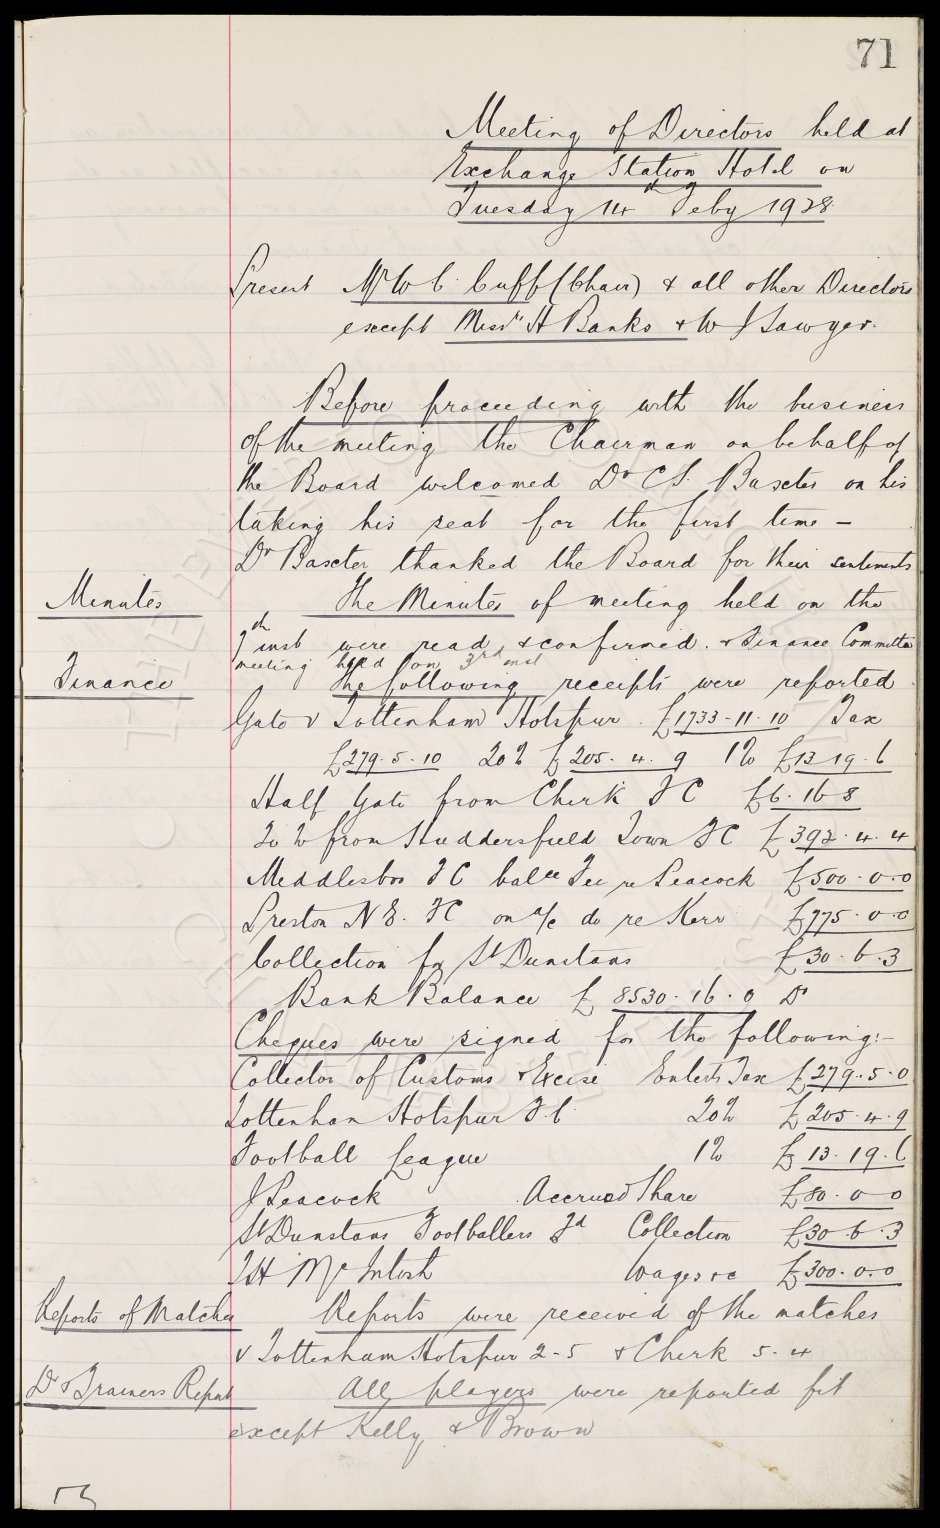 71
Meeting of Directors held at
Exchange Station Hotel on
Tuesday 14th Feby 1928
Present Mr W C Cuff (Chair) & all other Directors
except Messrs H Banks & W J Sawyer.
Before proceeding with the business
of the meeting the Chairman on behalf of
the Board welcomed Dr C S. Baxter on his
taking his seat for the first time –
Dr Baxter thanked the Board for their sentiments
Minutes The Minutes of meeting held on the
7th inst were read & confirmed. & Finance Committee
meeting held on 3rd inst
Finance The following receipts were reported
Gate v Tottenham Hotspur. £1733-11-10 Tax
£279.5.10 20% £205.4.9 1% £13.19.6
Half Gate from Chirk F C £6.16.8
20% from Huddersfield Town F C £392.4.4
Middlesbro F C balce Fee re Peacock £500.0.0
Preston N E. F C on a/c do re Kerr £775.0.0
Collection for St Dunstans £30.6.3
Bank Balance £8530.16.0 Dr
Cheques were signed for the following:-
Collector of Customs & Excise Enterts Tax £279.5.0
Tottenham Hotspur F C. 20% £205.4.9
Football League 1% £13.19.6
J Peacock Accrued Share £80.0.0
St Dunstans Footballers Fd Collection £30.6.3
T H McIntosh Wages &c £300.0.0
Reports of Matches Reports were received of the matches
v Tottenham Hotspur 2-5 & Chirk 5-4
Dr & Trainers Report All players were reported fit
except Kelly & Brown